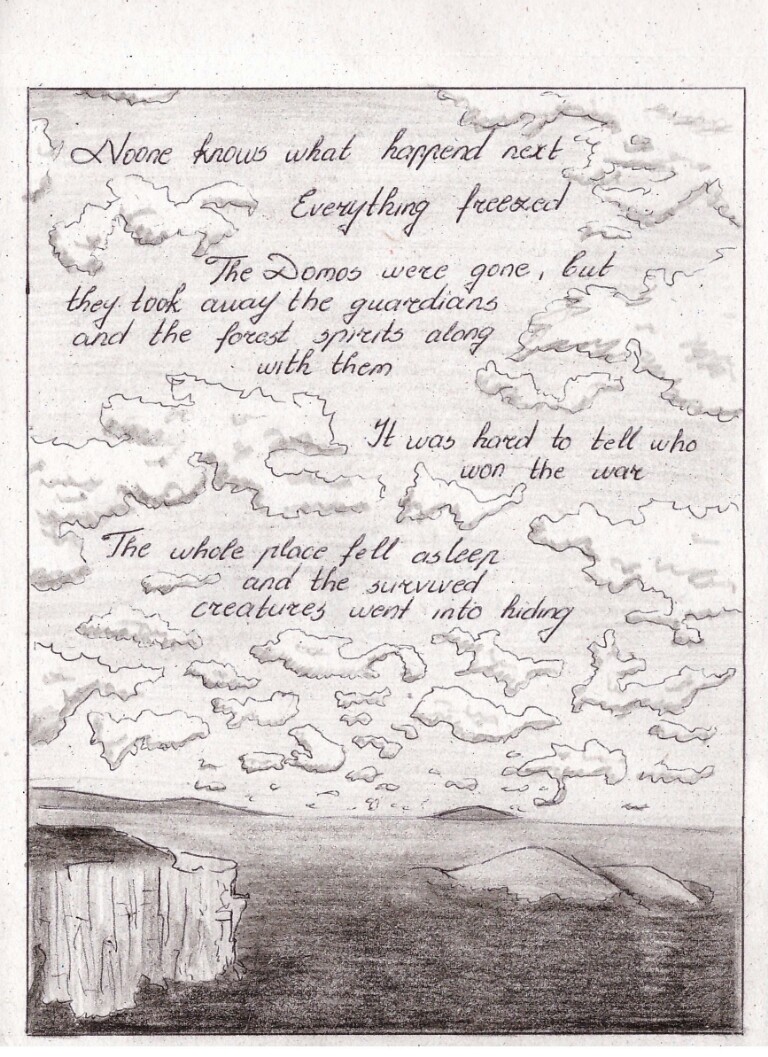 Noone knows what happend next
Everything freezed
The Domos were gone, but
they took away the guardians
and the forest spirits along
with them
It was hard to tell who
won the war
The whole place fell asleep
and the survived
creatures went into hiding